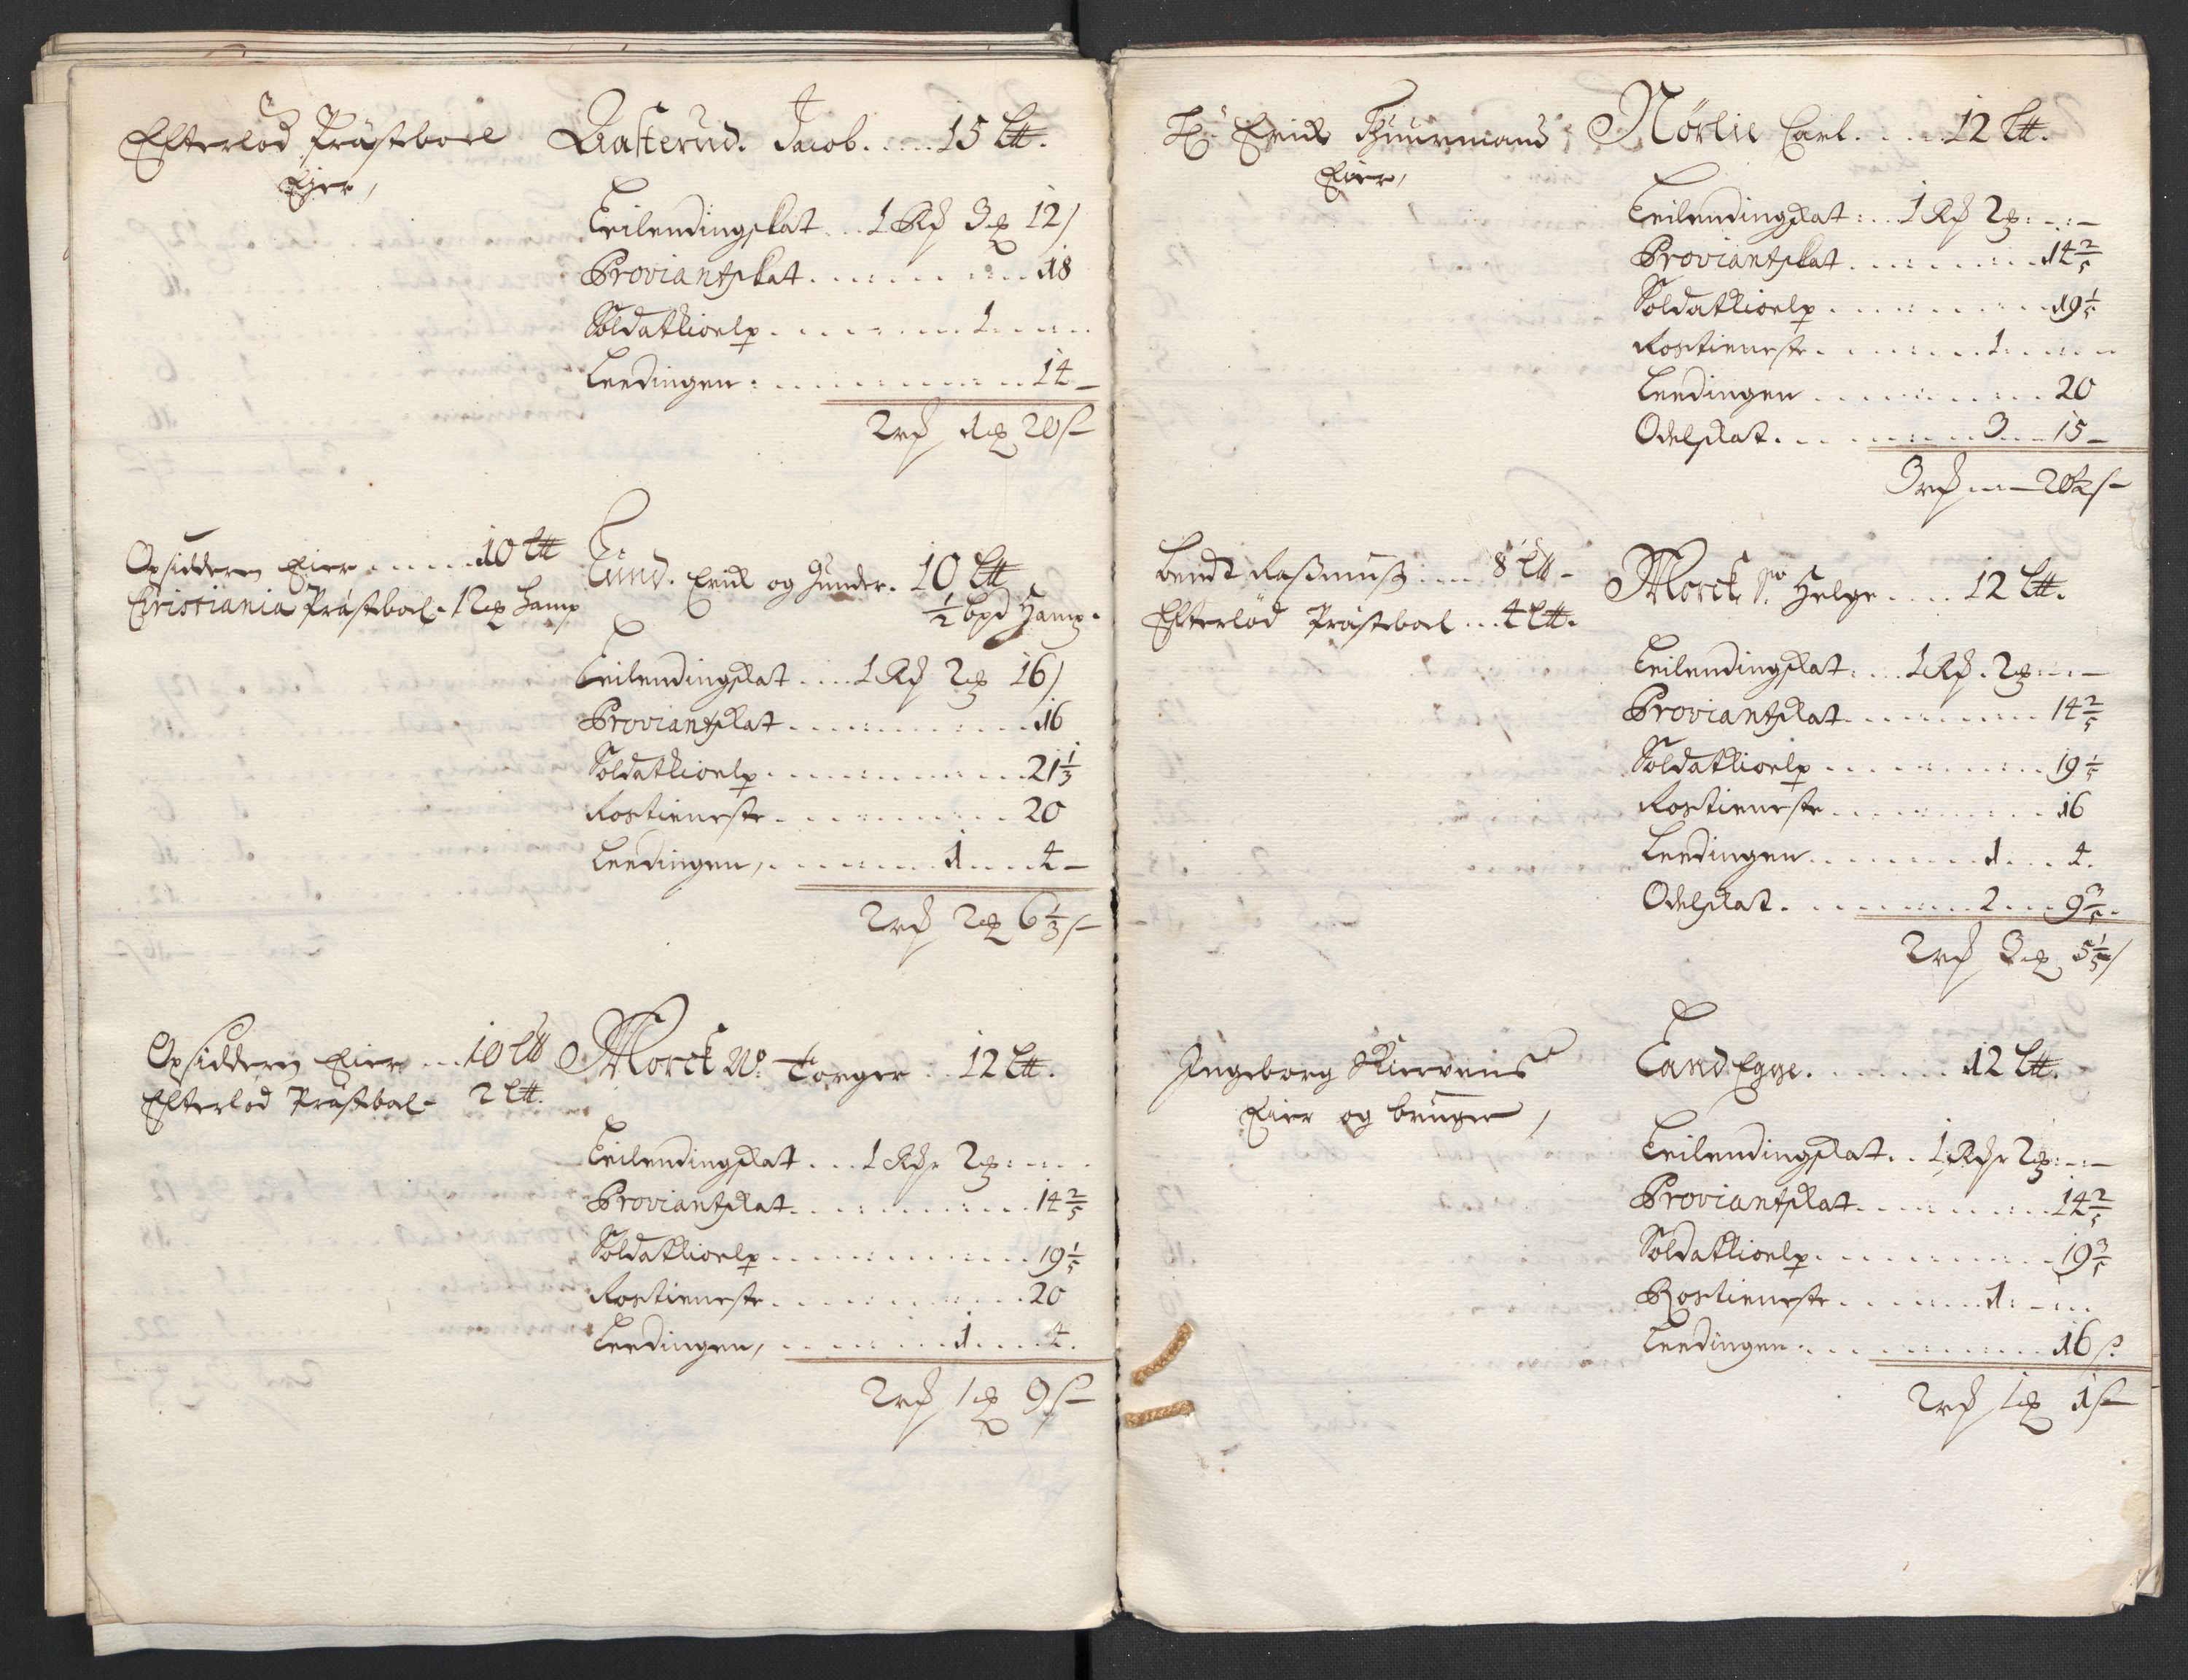 Efterlød Præsteboel
Ejer,
Aasterud. Jacob. .... 15 Ltt.
Leilendingskat ... 1 Rd 3 ort 12 s
Proviantskat ......... 18
Soldatkioelp ....... 1 ....
Leedingen: ......... 14 –
2 rd 1 ort 20 s –
Opsidderen Eier ..... 10 Ltt
Christiania Præsteboel - 12 ort hamp
Lund. Erick og Gunder. 10 Ltt
½ bpd Hamp.
Leilendingskat .... 1 Rd 2 ort 16 s
Proviantskat .......... 16
Soldatkioelp .......... 21 1/3
Rostieneste .......... 20
Leedingen, ........ 1 ... 4 –
2 rd 2 ort 6 1/3 s –
Opsidderen Eier ... 10 Ltt
Efterlød Præsteboel - 2 Ltt.
Morck N: Torger .. 12 Ltt.
Leilendingskat ... 1 Rd 2 ort : – : –
Proviantskat .......... 14 2/5
Soldatkioelp .......... 19 1/5
Rostieneste .......... 20
Leedingen, ........ 1 ... 4.
2 rd 1 ort 9 s –
Erick
Eier,
Nørlie Carl. .... 12 Ltt.
Leilendingskat : .. 1 Rd 2 ort : – : –
Proviantskat ......... 14 2/5
Soldatkioelp ......... 19 1/5
Rostieneste ........ 1 : ...
Leedingen .......... 20
Odelskat ......... 3 ... 15 –
3 rd – – 20 s –
Bendt Rasmuss .... 8 Ltt –
Efterlød Præsteboel ... 4 Ltt.
Morck Sø: Helge .... 12 Ltt.
Leilendingskat : .. 1 Rd . 2 ort : – : –
Proviantskat .......... 14 2/5
Soldatkioelp .......... 19 1/5
Rostieneste .......... 16
Leedingen ........ 1 ... 4.
Odelskat ......... 2 ... 9 3/5 .
2 rd 3 ort 5 1/5 s
Ingeborg Skiervens
Eier og bruger,
Land Egge. ...... 12 Ltt.
Leilendingskat .. 1 Rdr 2 ort : – : –
Proviantskat .......... 14 2/5
Soldatkioelp .......... 19 3/5
Rostieneste ....... 1 : – : –
Leedingen .......... 16 s.
2 rd 1 ort 1 s –